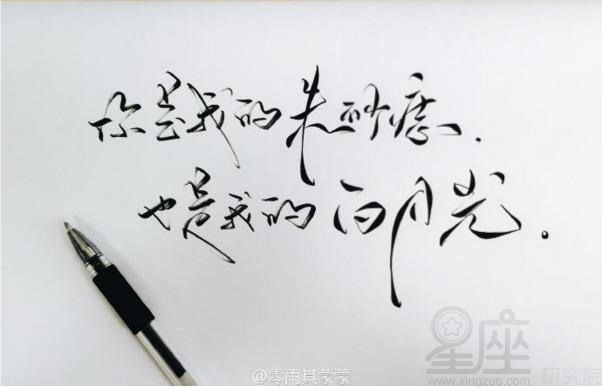 你是我的朱砂痣.
也是我的白月光.
@零雨其蒙蒙
星座
www.xingzuo.com 研究院